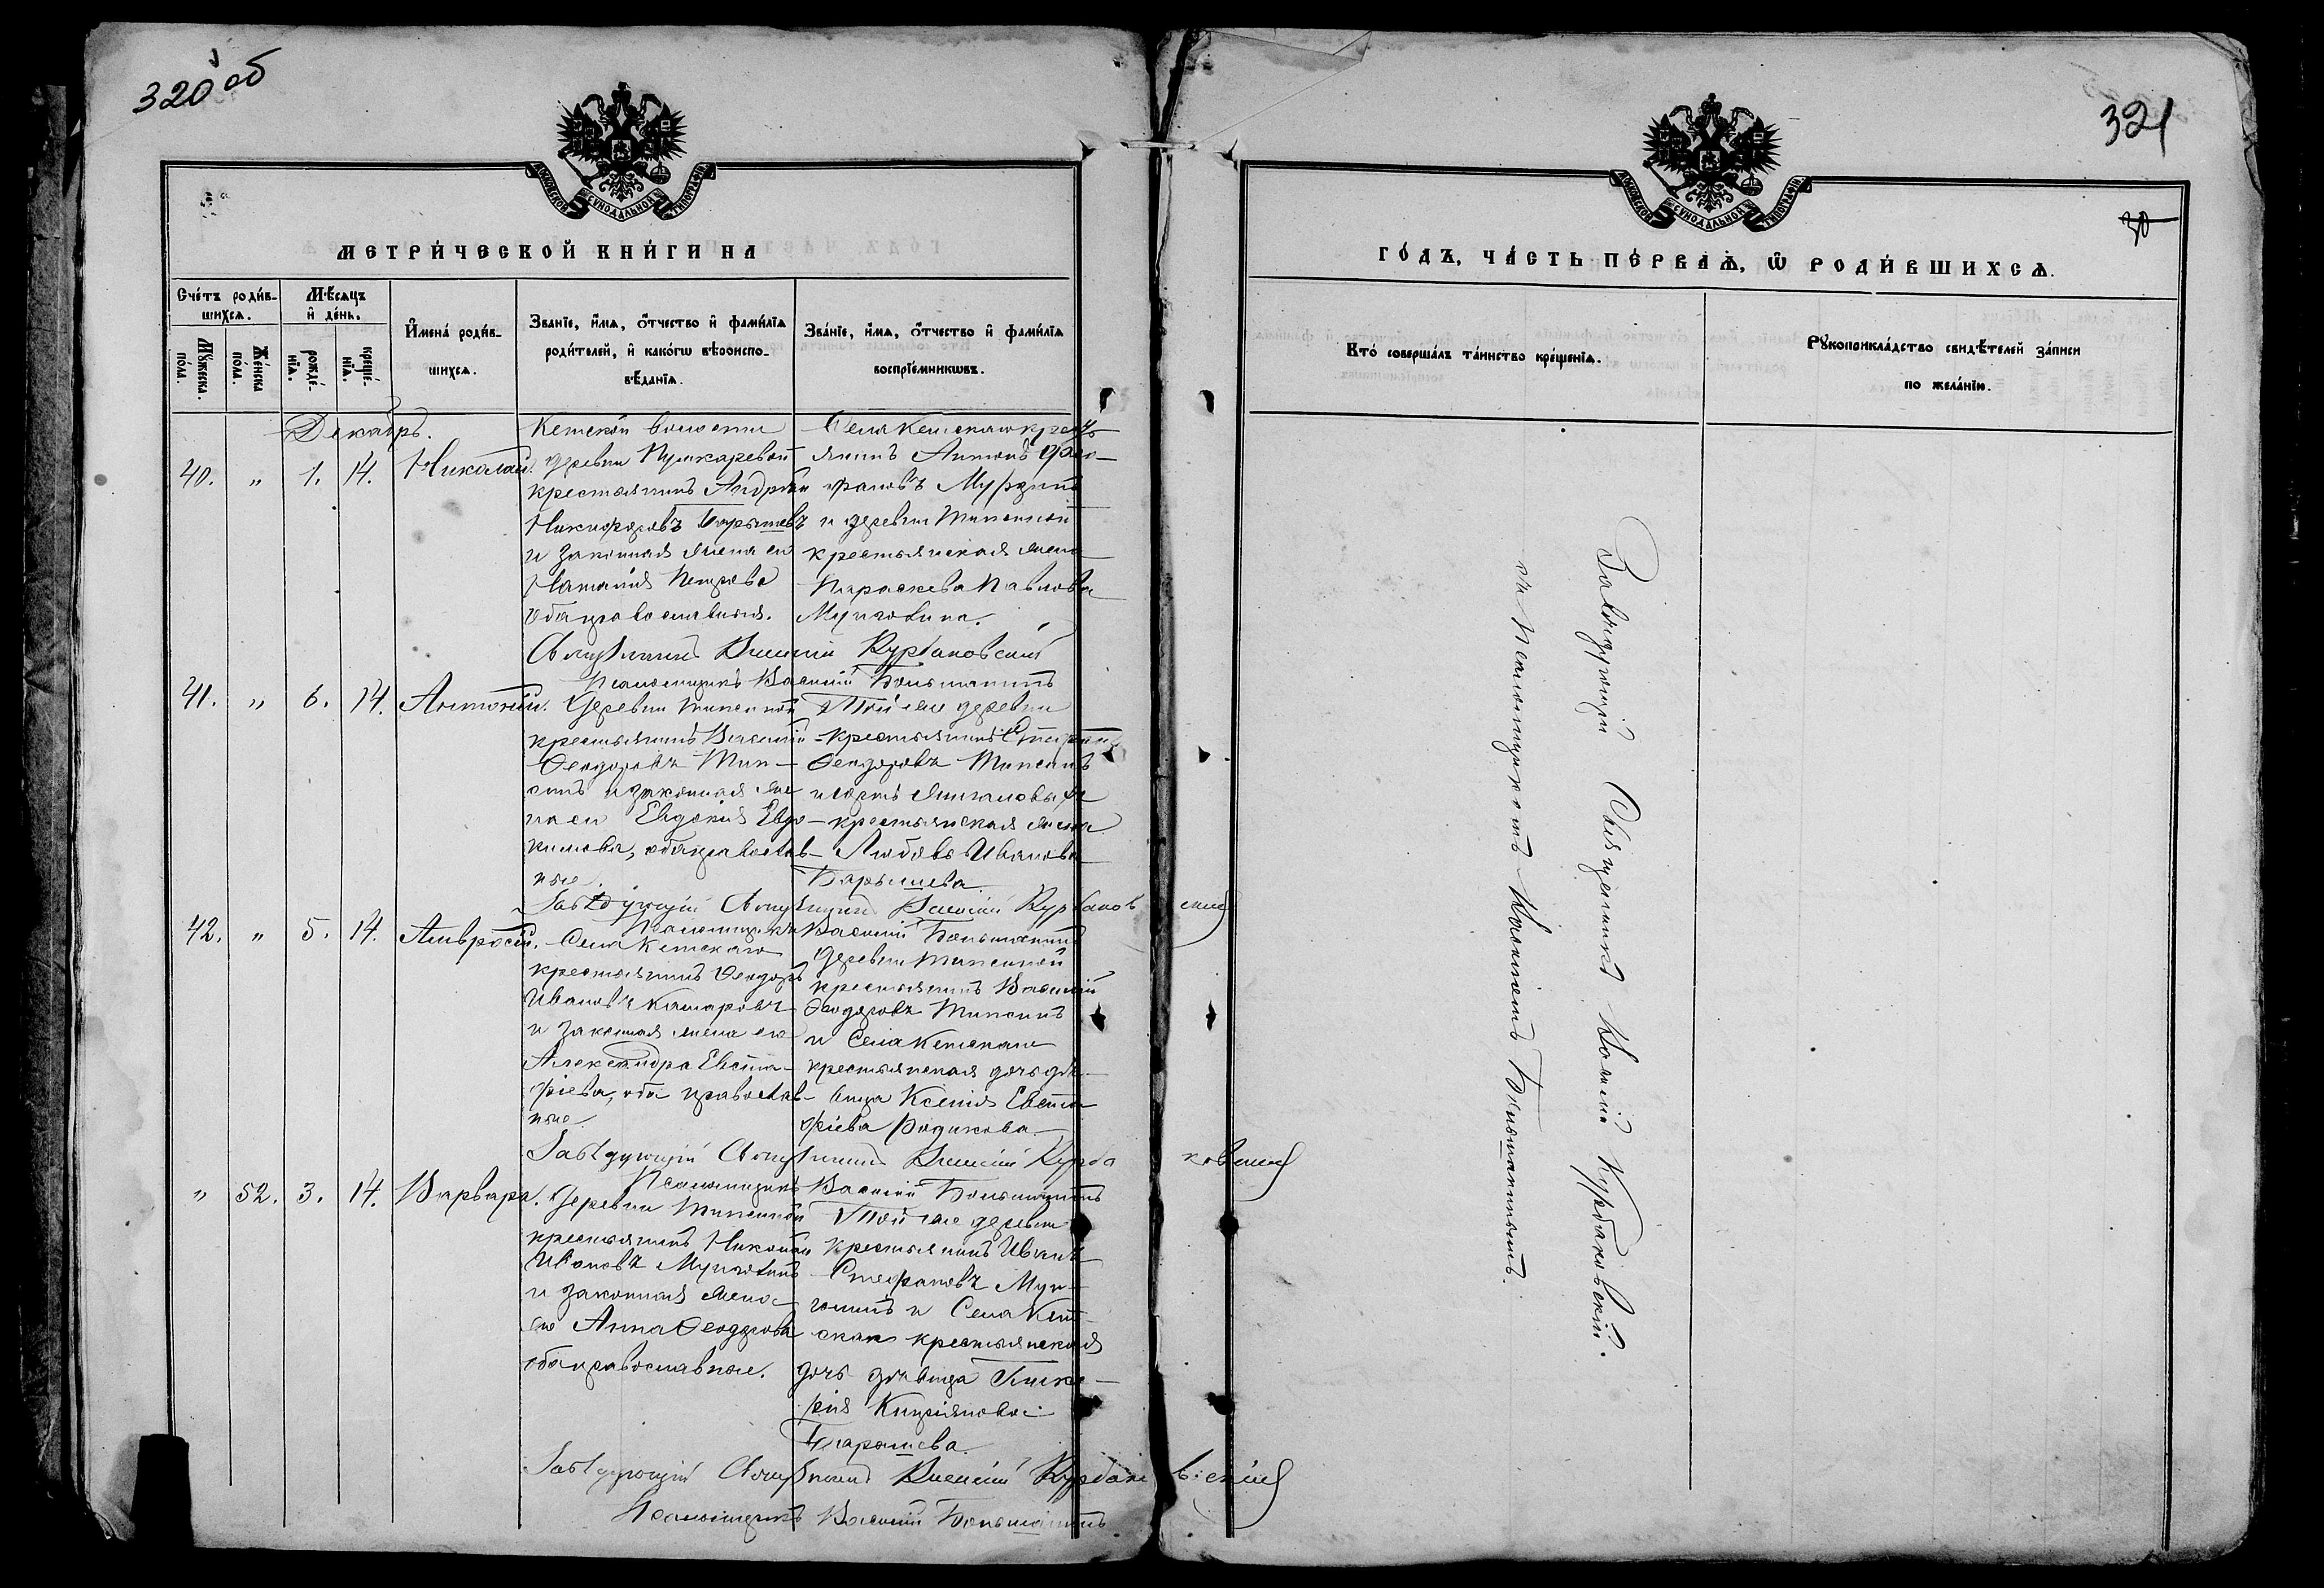 320 об
МЕТРИ́ЧЕСКОЙ КНИ́ГИ НА
Сче́тъ роди́в-
шихсѧ.
Мѣ́сѧцъ
и҆ де́нь.
Мꙋ́жеска по́ла.
Же́нска по́ла.
рожде́-нїѧ.
креще́-нїѧ.
И҆мена̀ роди́в-
шихсѧ.
Зва́нїе, и҆́мѧ, ѻ҆́тчество и҆ фами́лїѧ
роди́телей, и҆ како́гѡ вѣроиспо-
вѣ́данїѧ.
Зва́нїе, и҆́мѧ, ѻ҆́тчество и҆ фами́лїѧ
воспрїе́мникѡвъ.
Декабрь.
40. " 1. 14. Николай.
Кетской волости
деревни Пушкаревой
крестьянинъ Андрей
Никифоровъ Барышевъ
и законная жена его
Наталія Петрова
оба православныя.
Села Кетскаго крест-
янинъ Антонъ
и деревни Типсиной
крестьянская жена
Параскева Павлова
Мунговина.
Священникъ Василій Курбаковскій
Псаломщикъ Василій Большанинъ
41. " 6. 14. Антоній.
Деревни Типсиной
крестьянинъ Василій
Ѳеодоровъ Тип-
синъ и законная же-
на его Евдокія Евдо-
кимова, оба православ-
ные.
Той же деревни
крестьянинъ Стефанъ
Ѳеодоровъ Типсинъ
крестьянская жена
Любовь Иванова
Барышева.
Завѣдующій Священникъ Василій Курбаковскій
Псаломщикъ Василій Большанинъ
42. " 5. 14. Амвросій.
Села Кетскаго
крестьянинъ Ѳеодоръ
Ивановъ Комаровъ
и законная жена его
Александра Евста-
фіева, оба православ-
ные.
деревни Типсиной
крестьянинъ Василій
Ѳеодоровъ Типсинъ
и Села Кетскаго
крестьянская дочь дѣ-
вица Ксенія Евста-
фіева Родикова.
Завѣдующій Священникъ Василій Курбаковскій
Псаломщикъ Василій Большанинъ
" 52. 3. 14. Варвара.
Деревни Типсиной
крестьянинъ Николай
Ивановъ Мунговинъ
и законная жена
его Анна Ѳеодорова
оба православные.
Той же деревни
крестьянинъ Иванъ
Стефановъ Мун-
говинъ и Села Кет-
скаго крестьянская
дочь дѣвица Глике-
рія Кипріянова
Барышева.
Завѣдующій Священникъ Василій Курбаковскій
Псаломщикъ Василій Большанинъ
321
30
ГО́ДЪ, ЧА́СТЬ ПЕ́РВАѦ, Ѡ҆ РОДИ́ВШИХСѦ.
Кто̀ соверша́лъ та́инство креще́нїѧ.
Рꙋкоприкла́дство свидѣ́телей за́писи
по жела́нїю.
Завѣдующій Священникъ Василій Курбаковскій.
съ Псаломщикомъ Василіемъ Большанинымъ.